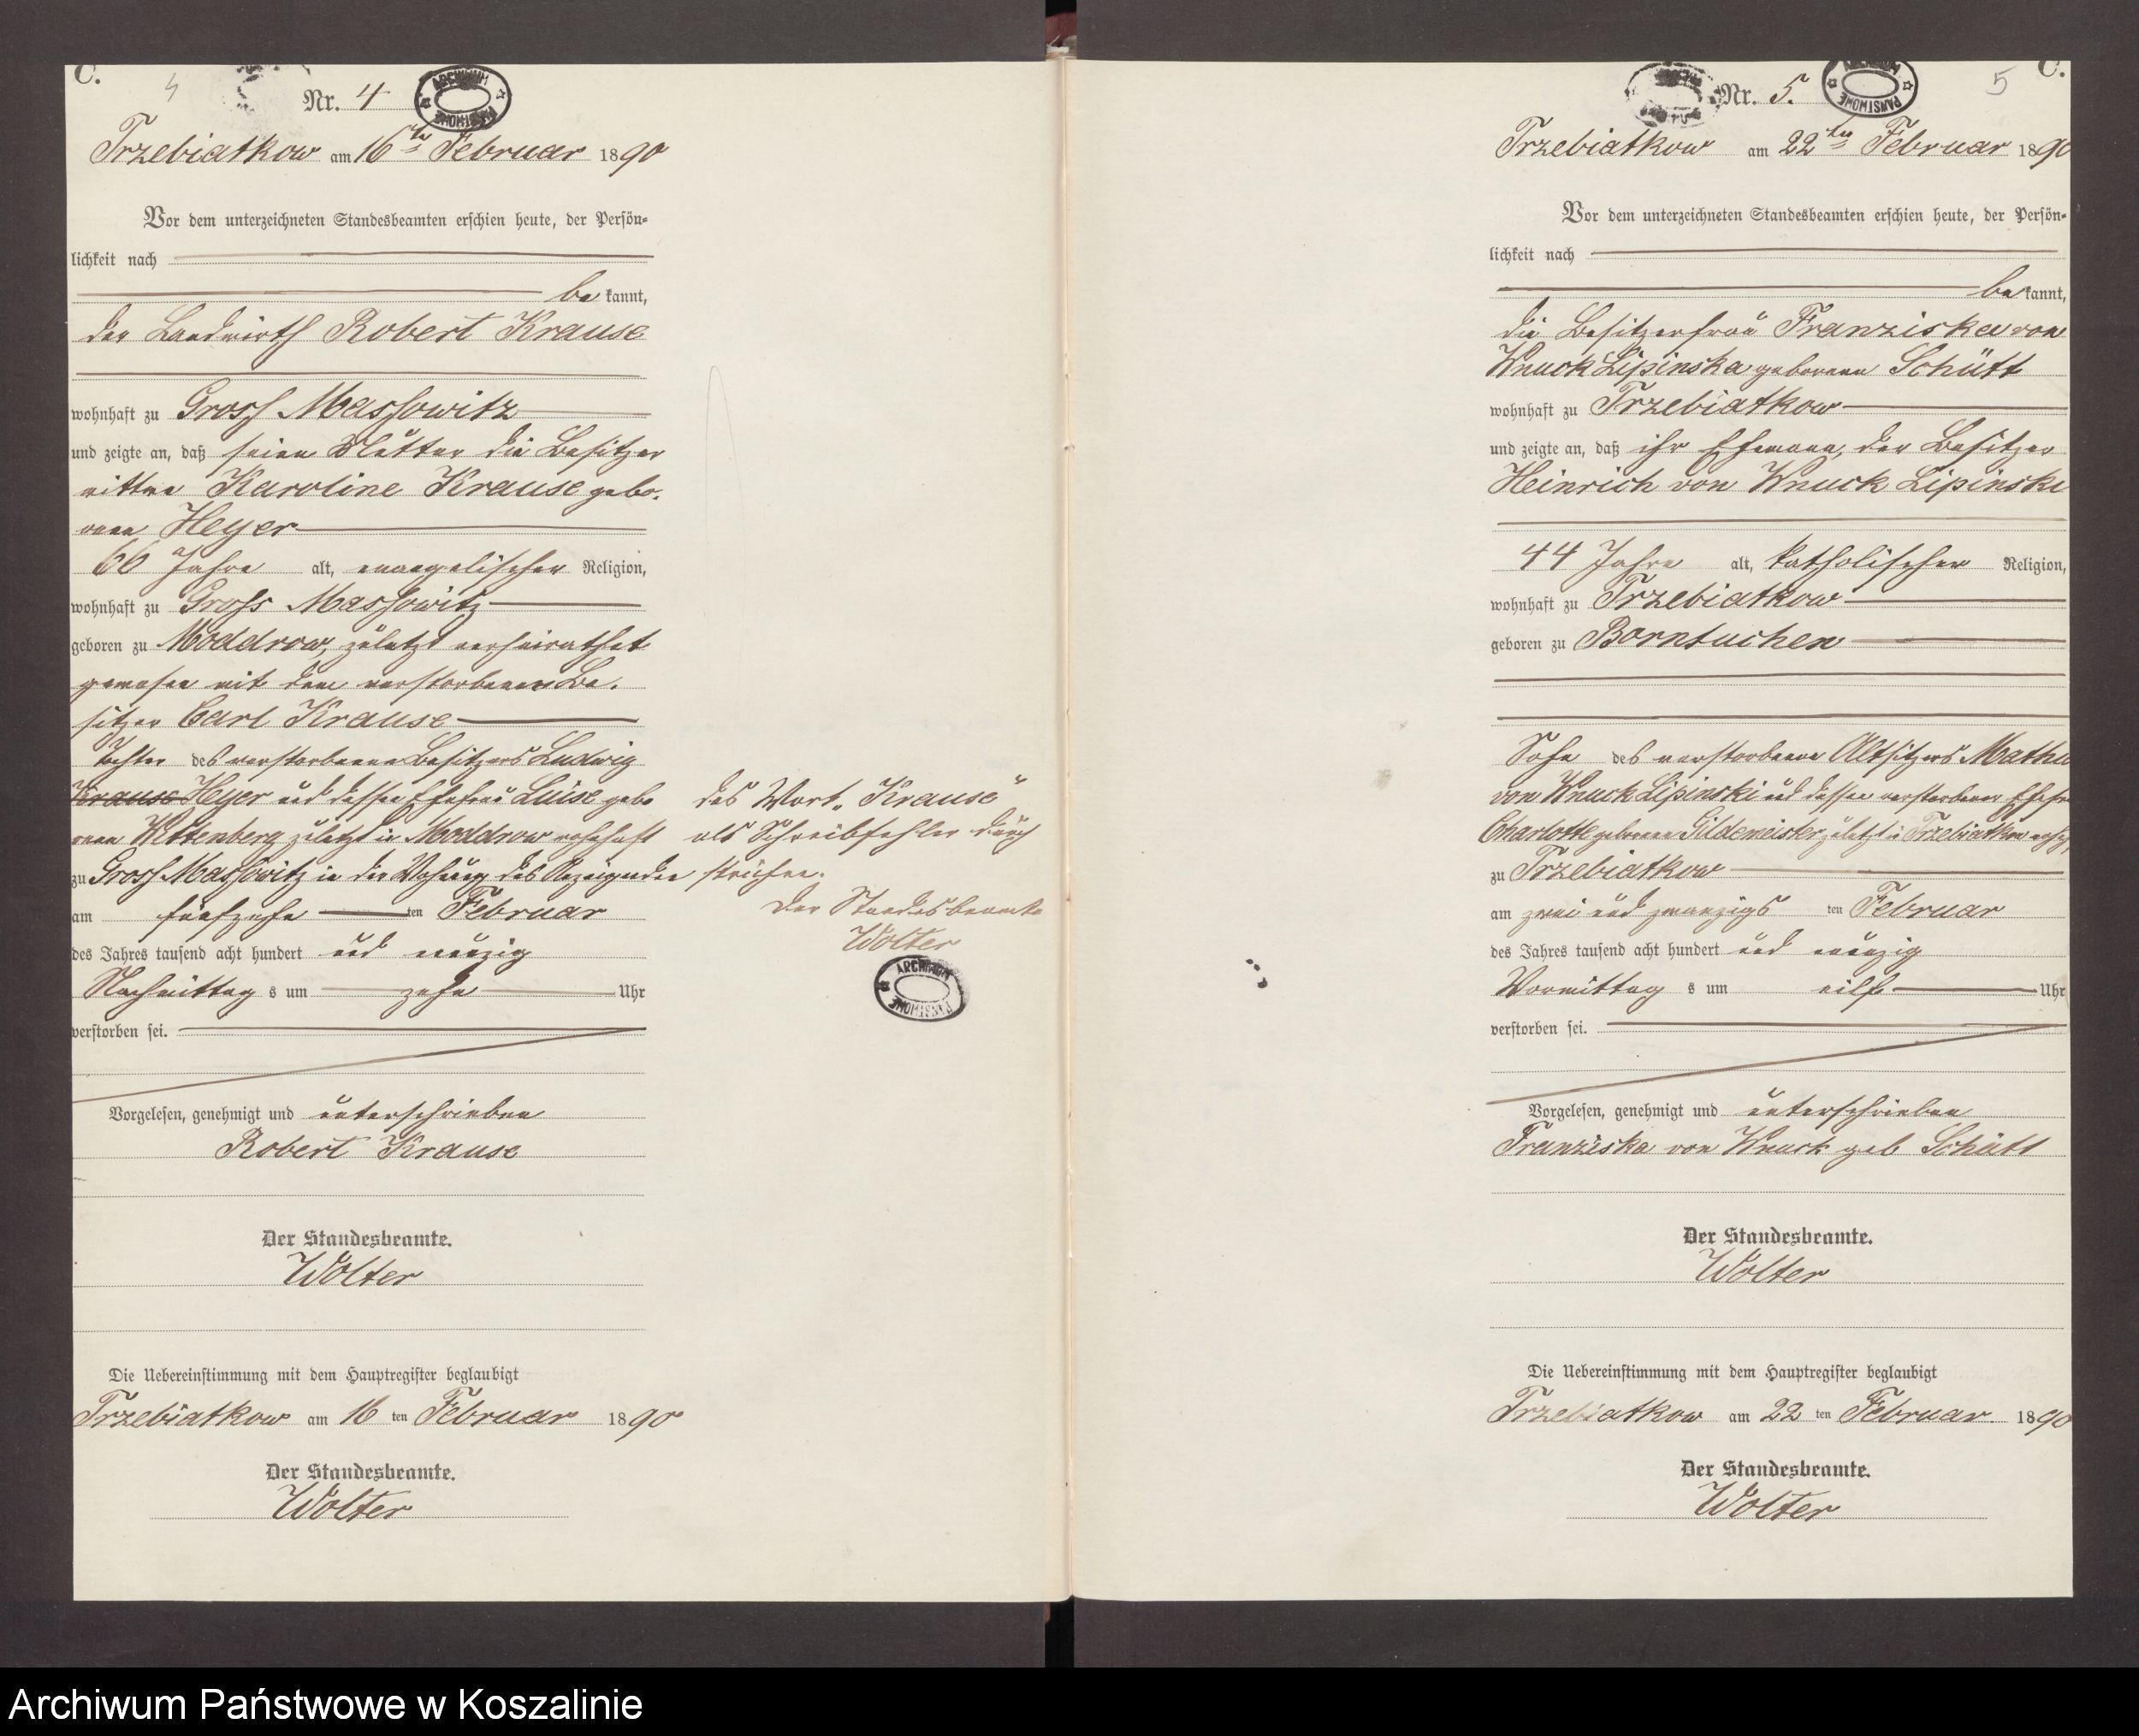 C.
4
Nr. 4
ARCHIWUM PAŃSTWOWE
Trzebiatkow am 16ten Februar 1890
Vor dem unterzeichneten Standesbeamten erschien heute, der Persön-
lichkeit nach
be kannt,
der Landwirth Robert Krause
wohnhaft zu Gross Massowitz
und zeigte an, daß seine Mutter die Besitzer
wittwe Karoline Krause gebo-
rene Heyer
66 Jahre alt, evangelischer Religion,
wohnhaft zu Gross Massowitz
geboren zu Moddrow, zuletzt verheirathet
gewesen mit dem verstorbenen Be-
sitzer Carl Krause
Tochter des verstorbenen Besitzers Ludwig
Krause Heyer und dessen Ehefrau Luise gebo
rene Wittenberg zuletzt in Moddrow wohnhaft
zu Gross Massowitz in der Wohnung des Anzeigenden
am fünfzehn ten Februar
des Jahres tausend acht hundert und neunzig
Nachmittag s um zehn Uhr
verstorben sei.
Vorgelesen, genehmigt und unterschrieben
Robert Krause
Der Standesbeamte.
Wolter
Die Uebereinstimmung mit dem Hauptregister beglaubigt
Trzebiatkow am 16 ten Februar 1890
Der Standesbeamte.
Wolter
das Wort „Krause"
als Schreibfehler durch
strichen.
Der Standesbeamte
Wolter
ARCHIWUM PAŃSTWOWE
C.
5
Nr. 5.
ARCHIWUM PAŃSTWOWE
Trzebiatkow am 22ten Februar 1890
Vor dem unterzeichneten Standesbeamten erschien heute, der Persön-
lichkeit nach
be kannt,
die Besitzerfrau Franziska von
Wnuck Lipinska geborene Schütt
wohnhaft zu Trzebiatkow
und zeigte an, daß ihr Ehemann, der Besitzer
Heinrich von Wnuck Lipinski
44 Jahre alt, katholischer Religion,
wohnhaft zu Trzebiatkow
geboren zu Borntuchen
Sohn des verstorbenen Altsitzers
von Wnuck Lipinski und dessen verstorbenen
Charlotte geborene Gildemeister zuletzt in Trzebiatkow
zu Trzebiatkow
am zwei und zwanzigs ten Februar
des Jahres tausend acht hundert und neunzig
Vormittag s um eilf Uhr
verstorben sei.
Vorgelesen, genehmigt und unterschrieben
Franziska von Wnuck geb Schütt
Der Standesbeamte.
Wolter
Die Uebereinstimmung mit dem Hauptregister beglaubigt
Trzebiatkow am 22 ten Februar 1890
Der Standesbeamte.
Wolter
Archiwum Państwowe w Koszalinie